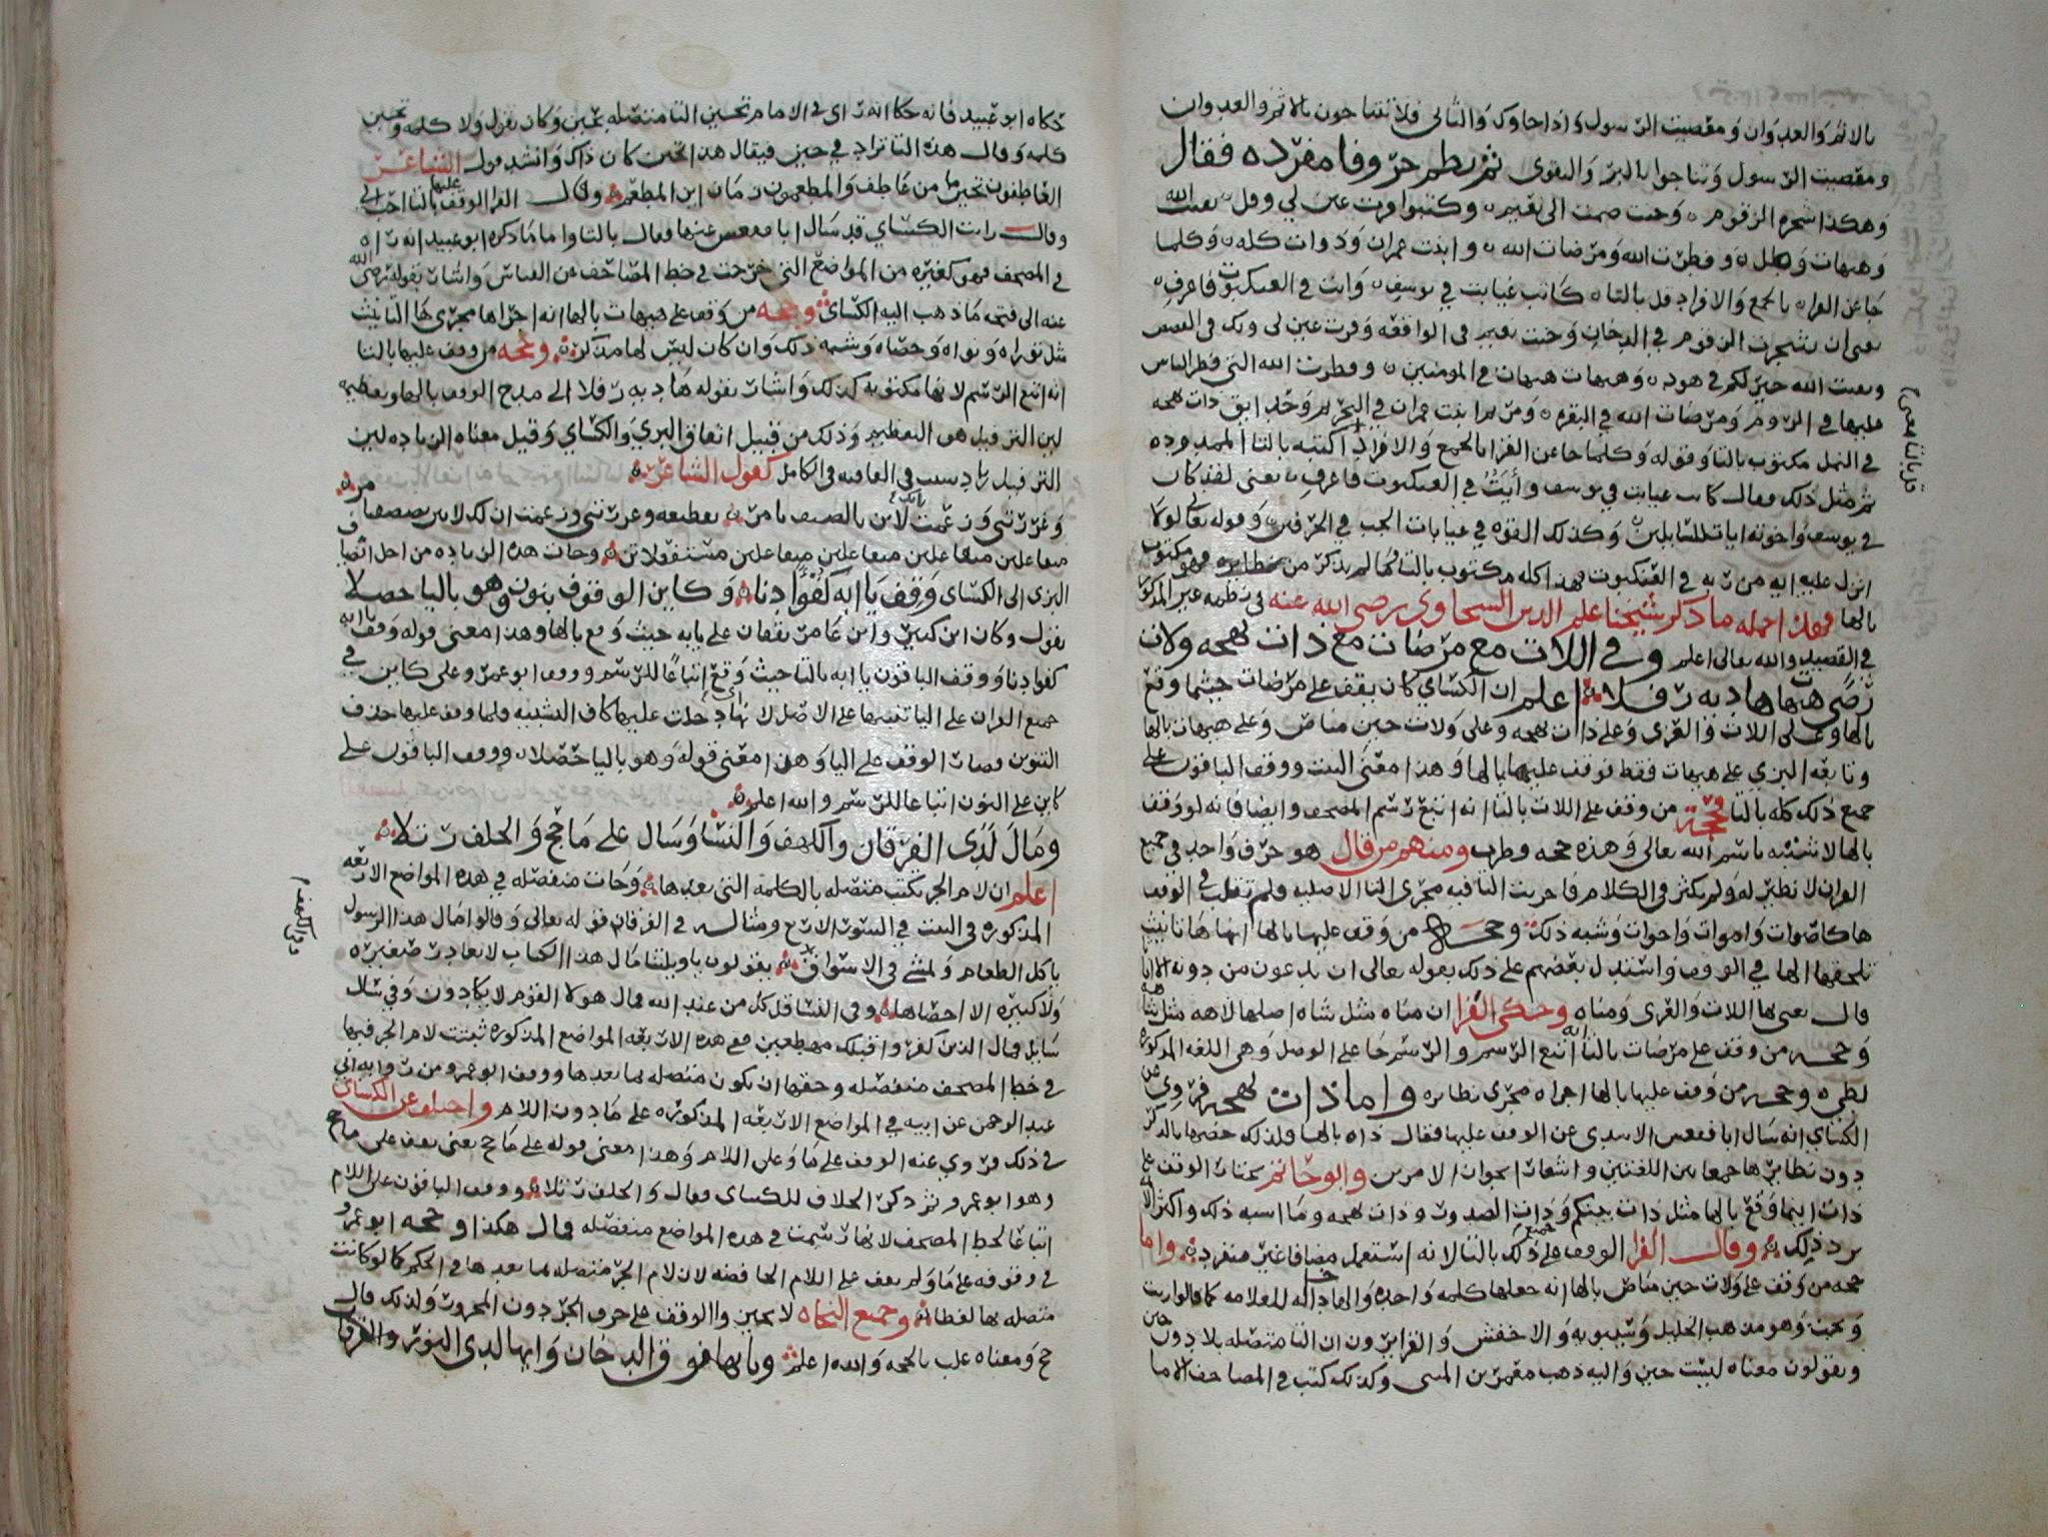 بالاثم والعدوان ومعصيت الرسول واذا جاوك والثاني فلا تتناجون بالاثم والعدوان
ومعصيت الرسول وتناجوا بالبر والتقوى ثم نظم حروفا مفرده فقال
وهكذا شجره الزقوم وجنت ضمت الى نعيم وكتبوا قرت عين لي وقل بقيت الله
وهيهات ولات وفطرت الله ومرضات الله وابنت عمران وذوات كله وكلما
جا عن القراه بالجمع والافراد قل بالتاه كانت غيابت في يوسف وايت في العنكبوت فاعرف
يعني ان شجرت الزقوم في الدخان وجنت نعيم في الواقعه وقرت عين لي ولك في القصص
وبقيت الله خير لكم في هود وهيهات هيهات في المومنين وفطرت الله التي فطر الناس
عليها في الروم ومرضات الله في البقره ومريم ابنت عمران في التحريم وحدايق ذات بهجه
في النمل مكتوب بالتا وقوله وكلما جا عن القرا بالجمع والافراد اكتبه بالتا الممدوده
ثم مثل ذلك فقال كانت غيابت في يوسف وايت في العنكبوت فاعرف يعني لقد كان
في يوسف واخوته ايات للسايلين وكذلك القوه في غيابات الجب في الحرفين وقوله تعالى لولا
انزل عليه ايه من ربه في العنكبوت فهذا كله مكتوب بالتا
بالها فهذا جمله ما ذكر شيخنا علم الدين السخاوي رضي الله عنه في نظمه غير المذكور
في القصيد والله تعالى اعلم وفي اللات مع مرضات مع ذات بهجه ولات
رضى هيهات هاديه رفلا اعلم ان الكساي كان يقف على مرضات حيثما وقع
بالها وعلى اللات والعزى وعلى ذات بهجه وعلى ولات حين مناص وعلى هيهات بالها
وتابعه البزي على هيهات فقط فوقف عليها بالها وهذا معنى البيت ووقف الباقون على
جميع ذلك كله بالتا فحجة من وقف على اللات بالتا انه اتبع رسم المصحف وايضا فانه لو وقف
بالها لاشبه باسم الله تعالى وهذه حجه وطرب ومنهم من قال هو حرف واحد في جميع
القران لا نظير له ولم يكثر في الكلام فاجريت التا فيه مجرى التا الاصليه فلم تقلب في الوقف
ها كاصوات واموات واخوات وشبه ذلك وحجه من وقف عليها بالها انها ها تانيث
تلحقها الها في الوقف واستدل بعضهم على ذلك بقوله تعالى ان يدعون من دونه الا اناثا
قال يعني بها اللات والعزى ومناه وحكى الفرا ان مناه مثل شاه اصلها لاهه مثل شاهه
وحجه من وقف على مرضات بالتا انه اتبع الرسم والرسم جا على الوصل وهي اللغه المذكوره
لطي وحجه من وقف عليها بالها اجراه مجرى نظايره واما ذات بهجه فروي عن
الكساي انه سال ابا فقعس الاسدي عن الوقف عليها فقال ذاه بالها ولذلك خصها بالذكر
دون نظايرها جمعا بين اللغتين واشعارا بجواز الامرين وابو حاتم يختار الوقف على
ذات اينما وقع بالها مثل ذات بينكم وذات الصدور وذات بهجه وما اشبه ذلك واكثر القرا
يرد ذلك وقال الفرا الوقف على جميع ذلك بالتا لانه استعمل مضافا غير منفرد واما
حجه من وقف على ولات حين مناص بالها انه جعلها كلمه واحده والها داله للعلامه كما قالوا ربت
وثمت وهو مذهب الخليل وسيبويه والاخفش والفرا يرون ان التا متصله بلا دون حين
ويقولون معناه ليست حين واليه ذهب معمر بن المثنى وكذلك كتب في المصاحف الا ما
في تا التي هي بعض
حكاه ابو عبيد فانه حكا انه راى في الامام تحين التا متصله بحين وكان يقول ولا كلمه وتحين
كلمه وقال هذه التا تزاد في حين فيقال هذا تحين كان ذاك وانشد قول الشاعر
العاطفون تحين ما من عاطف والمطعمون زمان اين المطعم وقال الفرا الوقف عليها بالتا احب الي
وقال رايت الكساي قد سال ابا فقعس عنها فقال بالتا واما ما ذكره ابو عبيد انه راه
في المصحف فهو كغيره من المواضع التي خرجت في خط المصاحف عن القياس واشار بقوله رضى الله
عنه الى فتحه ما ذهب اليه الكساي وحجه من وقف على هيهات بالها انه اجراها مجرى ها التانيث
مثل توراه ونواه وحصاه وشبه ذلك وان كان ليس لها مذكر وحجه من وقف عليها بالتا
انه اتبع الرسم لانها مكتوبه كذلك واشار بقوله هاديه رفلا الى مدح الوقف بالها وتعظيمه
لين الترفيل هو التعظيم وذلك من قبيل اتفاق البزي والكساي وقيل معناه الزياده لين
الترفيل زياد سبب في القافيه في الكامل كقول الشاعر
وغررتني وزعمت انك لابن بالصيف تامر تقطيعه وغررتني وزعمت ان لك لابن بصصيف تامر
متفاعلن متفاعلن متفاعلن مستفعلاتن وجات هذه الزياده من اجل انضياف
البزي الى الكساي وقف يا ابه كفوا دنا وكاين الوقوف بنون وهو باليا حصلا
يقول وكان ابن كثير وابن عامر يقفان على يابه حيث وقع بالها وهذا معنى قوله وقف يا ابه
كفوا دنا ووقف الباقون يا ابه بالتا حيث وقع اتباعا للرسم ووقف ابو عمرو على كاين في
جميع القران على اليا تنبيها على الاصل لانها اي دخلت عليها كاف التشبيه فلما وقف عليها حذف
التنوين فصار الوقف على اليا وهذا معنى قوله وهو باليا حصلا ووقف الباقون على
كاين على النون اتباعا للرسم والله اعلم
ومال لدى الفرقان والكهف والنسا وسال على ما حج والخلف رتلا
اعلم ان لام الجر تكتب متصله بالكلمه التي بعدها وجات منفصله في هذه المواضع الاربعه
المذكوره في البيت في السور الاربع ومثاله في الفرقان قوله تعالى وقالوا مال هذا الرسول
ياكل الطعام ويمشي في الاسواق يقولون ياويلتنا مال هذا الكتاب لا يغادر صغيره
ولا كبيره الا احصاها وفي النسا قل كل من عند الله فمال هولا القوم لا يكادون وفي سال
سايل فمال الذين كفروا قبلك مهطعين فهذه الاربعه المواضع المذكوره ثبتت لام الجر فيها
في خط المصحف منفصله وحقها ان تكون متصله بما بعدها ووقف ابو عمرو من روايه ابي
عبد الرحمن عن ابيه في المواضع الاربعه المذكوره على ما دون اللام واختلف عن الكساي
في ذلك فروي عنه الوقف على ما وعلى اللام وهذا معنى قوله على ما حج يعني يقف على ما حج
وهو ابو عمرو ثم ذكر الخلاف للكساي فقال والخلف رتلا ووقف الباقون على اللام
اتباعا لخط المصحف لانها رسمت في هذه المواضع منفصله قال هكذا وحجه ابو عمرو
في وقوفه على ما ولم يقف على اللام الخافضه لان لام الجر متصله بما بعدها في الحكم كما لو كانت
متصله بها لفظا وجميع النحاه لا يجيزوا الوقف على حرف الجر دون المجرور ولذلك قال
حج ومعناه غلب بالحجه والله اعلم ويا ايها فوق الدخان وايها لدى النور والرحمن